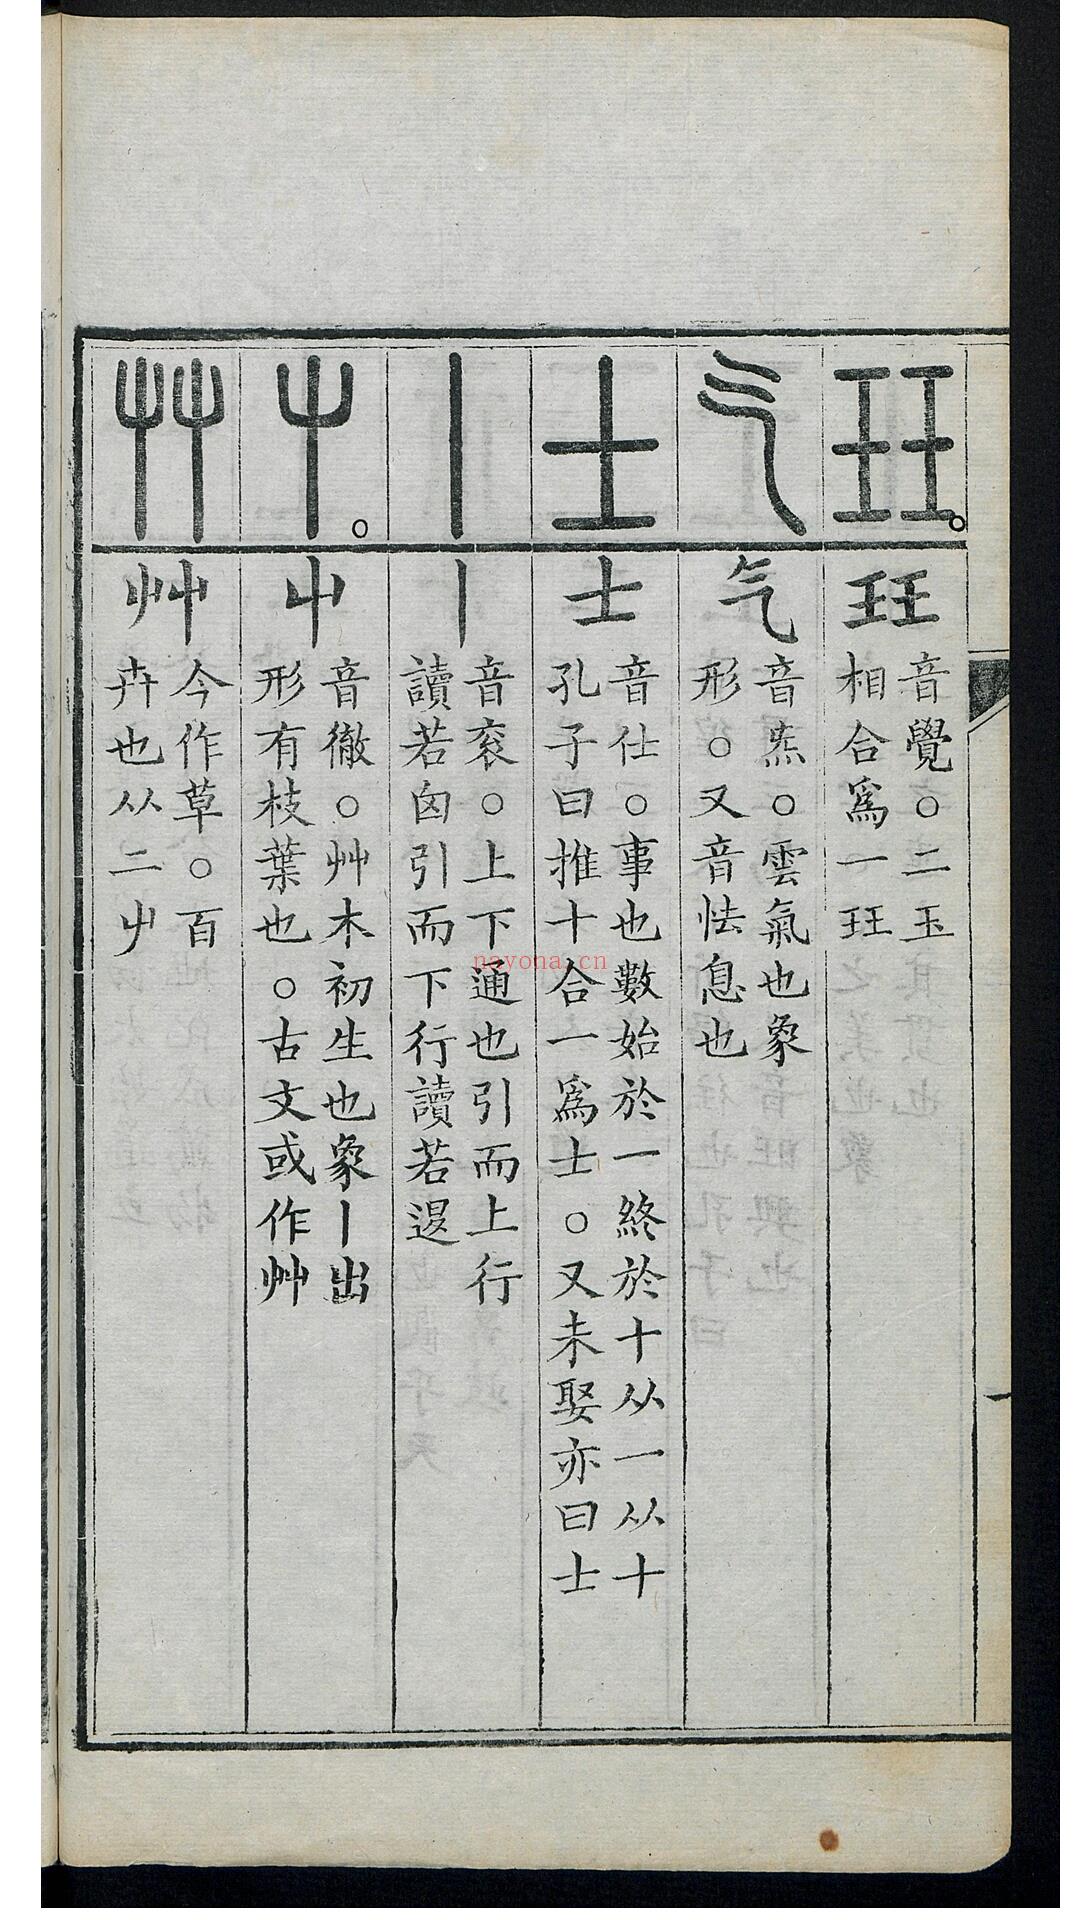 玨
玨
音覺。二玉
相合爲一玨
气
气
音炁。雲氣也象
形。又音怯息也
士
士
音仕。事也數始於一終於十从一从十
孔子曰推十合一爲士。又未娶亦曰士
丨
丨
音袞。上下通也引而上行
讀若囟引而下行讀若𨓤
屮
屮
音徹。艸木初生也象丨出
形有枝葉也。古文或作艸
艸
艸
今作草。百
卉也从二屮
一
nayona.cn